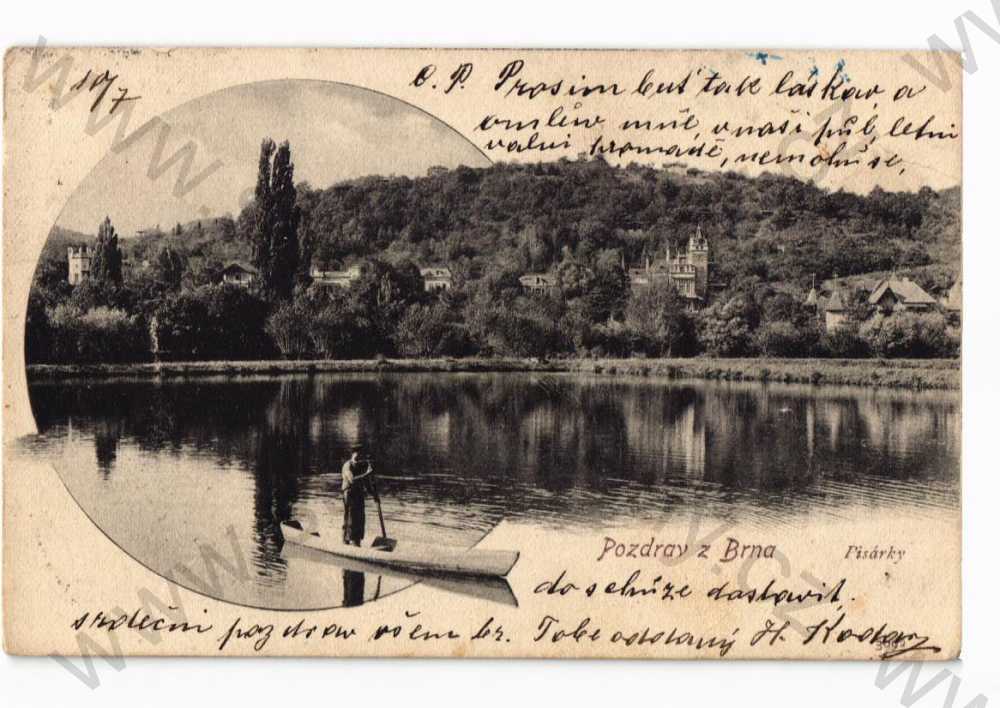 10/7
O. P. Prosim buť tak láskav a
omluv mně, v naši půl letni
valni hromadě, nemohu se
Pozdrav z Brna Pisárky
do schůze dostavit.
srdečni pozdrav všem br. Tobe oddaný H.